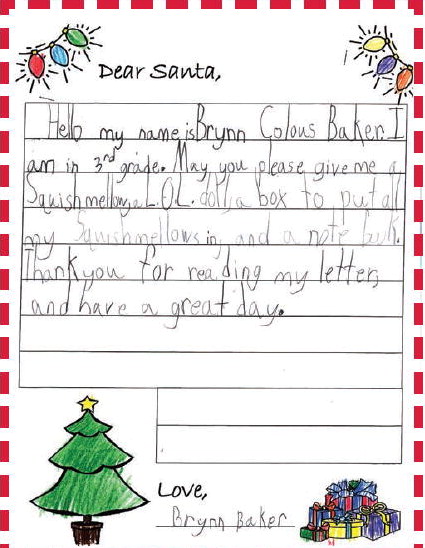 Dear Santa,
Hello my name is Brynn Colous Baker. I
am in 3rd grade. May you please give me a
Squishmellow, a L.O.L. doll, a box to put all
my Squishmellows in, and a note buk.
Thank you for reading my letter,
and have a great day.
Love,
Brynn Baker